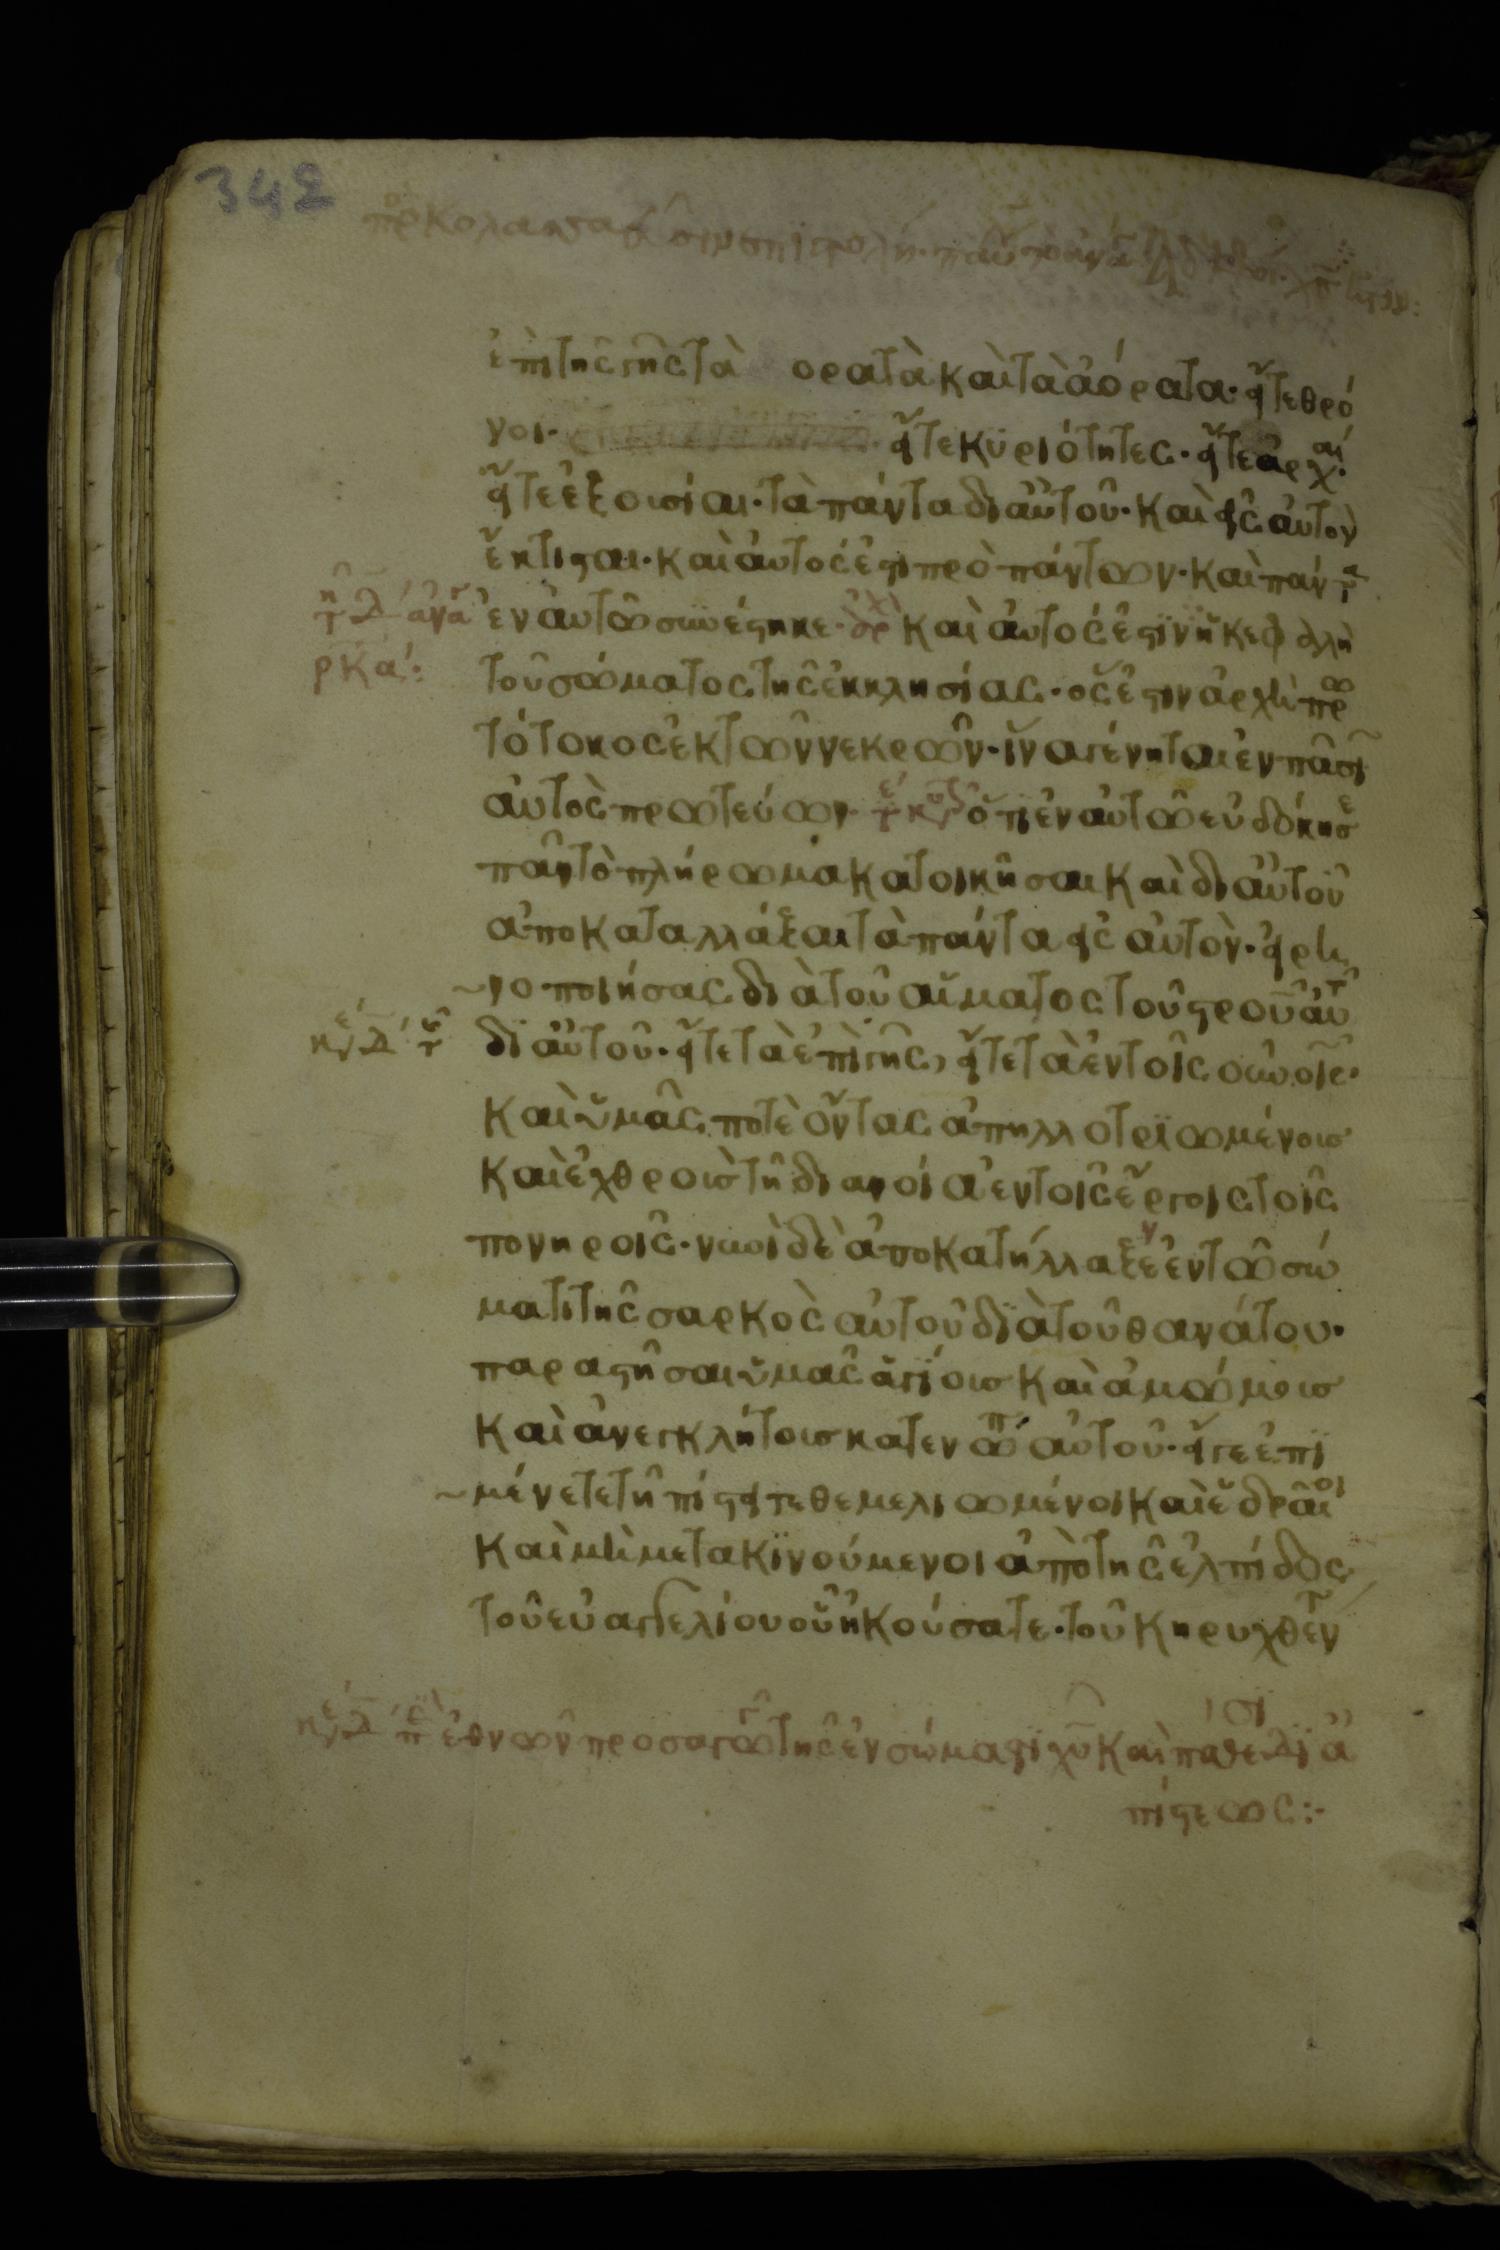 342
ἐπὶ τῆς γῆς τὰ ὁρατὰ καὶ τὰ ἀόρατα· εἴτε θρό
νοι· εἴτε κυριότητες· εἴτε ἀρχαί·
εἴτε ἐξουσίαι· τὰ πάντα δι αὐτοῦ· καὶ εἰς αὐτὸν
ἔκτισται· καὶ αὐτός ἐστι πρὸ πάντων· καὶ πάντα
ἐν αὐτῶ συνέστηκε· καὶ αὐτός ἐστὶν ἡ κεφαλὴ
ρκα:
τοῦ σώματος τῆς ἐκκλησίας· ὅς ἐστιν ἀρχὴ πρω
τότοκος ἐκ τῶν νεκρῶν· ἵνα γένηται ἐν πᾶσι
αὐτὸς πρωτεύων· ὅτι ἐν αὐτῶ εὐδόκησε
πᾶν τὸ πλήρωμα κατοικῆσαι καὶ δι αὐτοῦ
ἀποκαταλλάξαι τὰ πάντα εἰς αὐτὸν· εἰρη
νοποιήσας διὰ τοῦ αἵματος τοῦ στρου αὐτ
δι αὐτοῦ· εἴτε τὰ ἐπὶ γῆς, εἴτε τὰ ἐν τοῖς οὐνοις·
καὶ ὑμᾶς ποτὲ ὄντας ἀπηλλοτριωμένους
καὶ ἐχθροὺς τῆ διανοία ἐν τοῖς ἔργοις τοῖς
πονηροῖς· νυνὶ δὲ ἀποκατήλλαξεν ἐν τῶ σώ
ματι τῆς σαρκὸς αὐτοῦ διὰ τοῦ θανάτου·
παραστῆσαι ὑμᾶς ἁγίους καὶ ἀμώμους
καὶ ἀνεγκλήτους κατενώπ αὐτοῦ· εἴγε ἐπι
μένετε τῆ πίστει τεθεμελιωμένοι καὶ ἑδραῖοι
καὶ μὴ μετακινούμενοι ἀπὸ τῆς ἐλπίδος
τοῦ εὐαγγελίου οὗ ἠκούσατε· τοῦ κηρυχθέντ
ἐθνῶν προσαγωγῆς ἐν σώματι χυ καὶ πάθει διὰ
πίστεως: